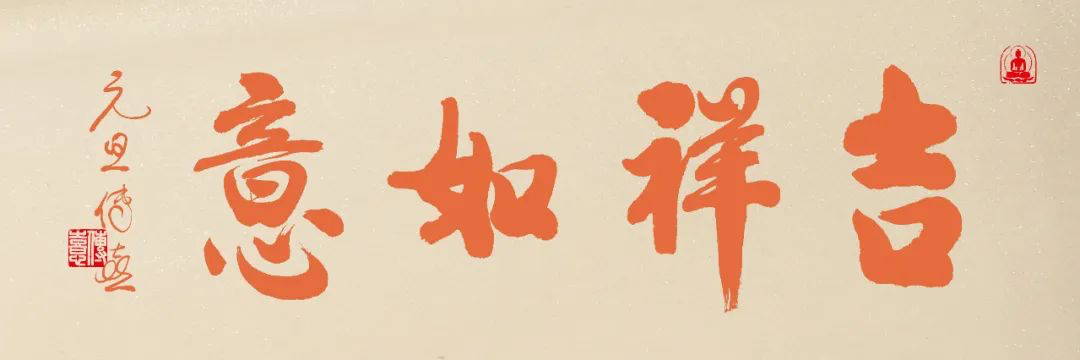 吉祥如意
元旦传喜
傳喜